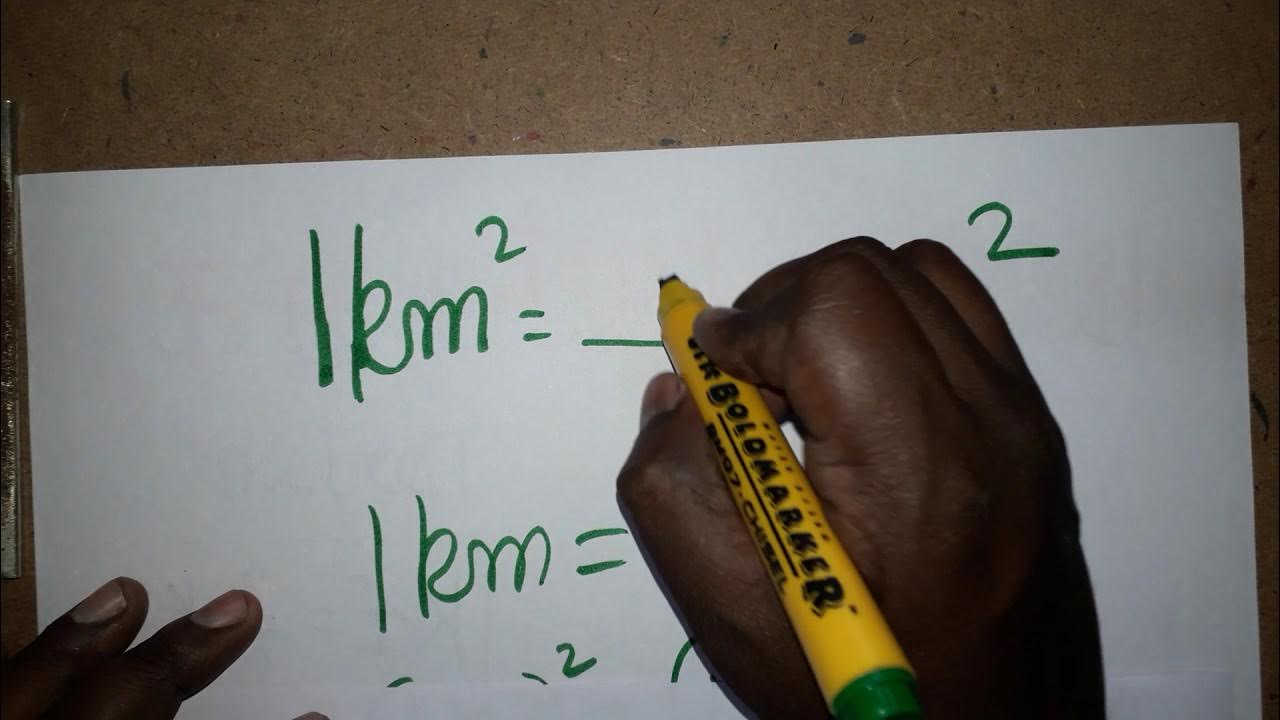 1km² = __ ²
1km =
2
BOLDMARKER
CHISEL